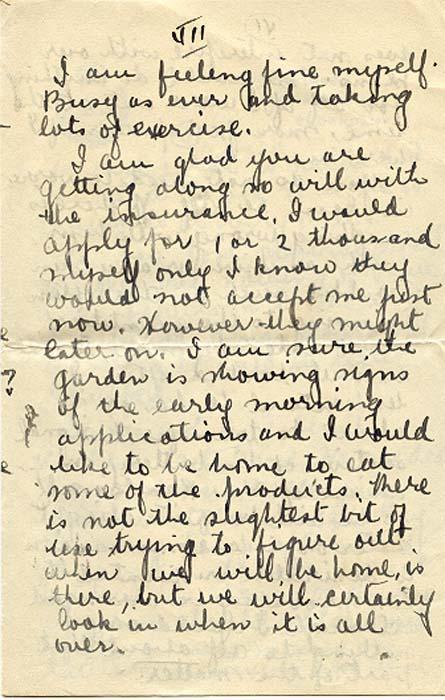 VII
I am feeling fine myself.
Busy as ever and taking
lots of exercise.
I am glad you are
getting along so will with
the insurance. I would
apply for 1 or 2 thousand
myself only I know they
would not accept me just
now. However they might
later on. I am sure the
garden is showing signs
of the early morning
applications and I would
like to be home to eat
some of the products. There
is not the slightest bit of
use trying to figure out
when we will be home, is
there, but we will certainly
look in when it is all
over.